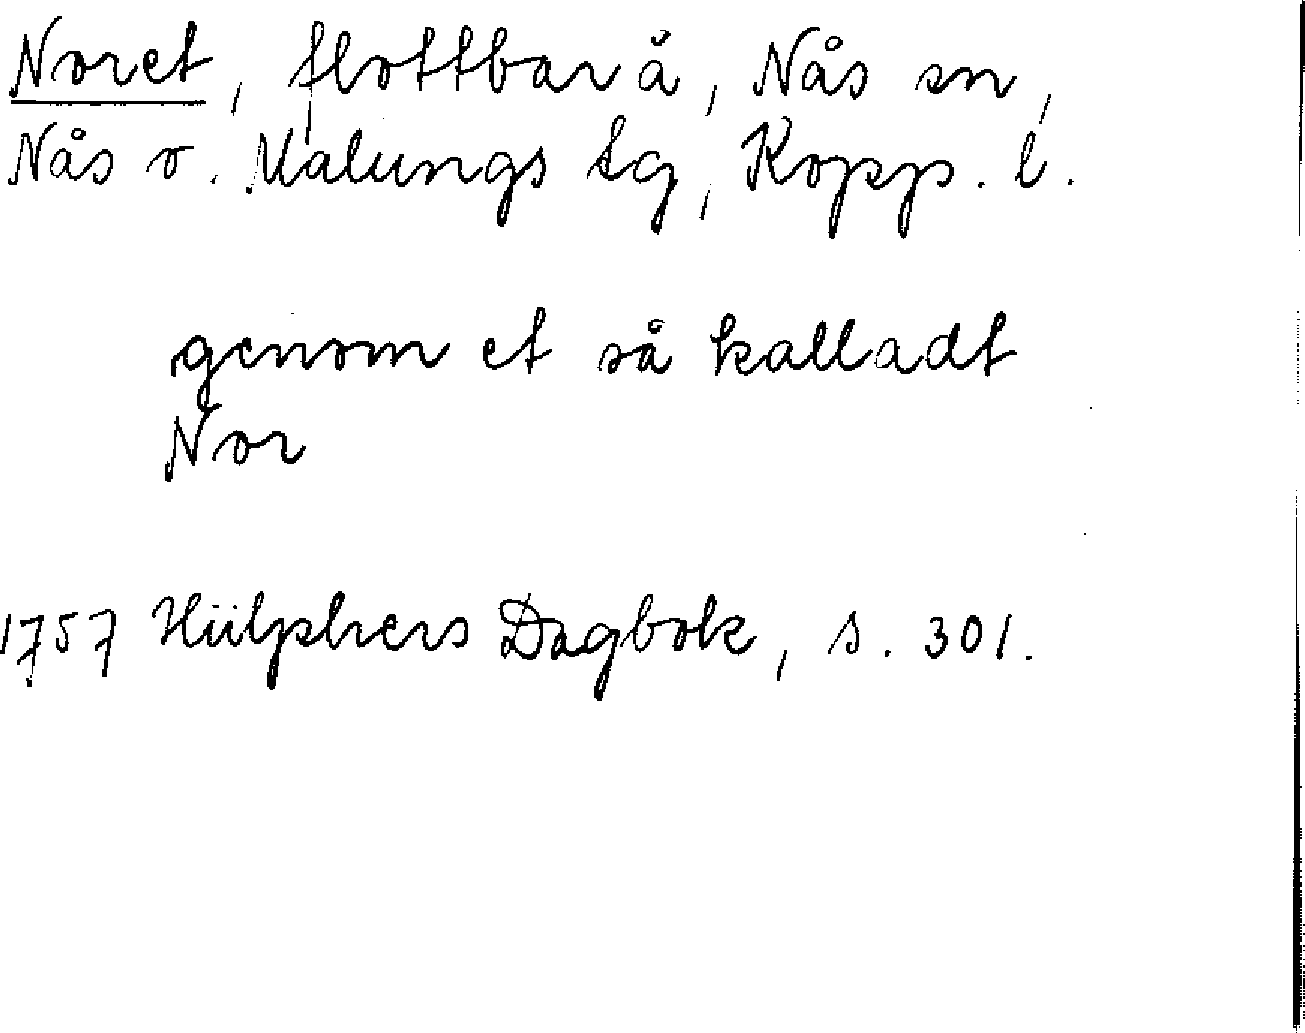 Noret, flottbar å, Nås sn,
Nås o. Malungs tg, Kopp. l.
genom et så kalladt
Nor
1757 Hülphers Dagbok, s. 301.